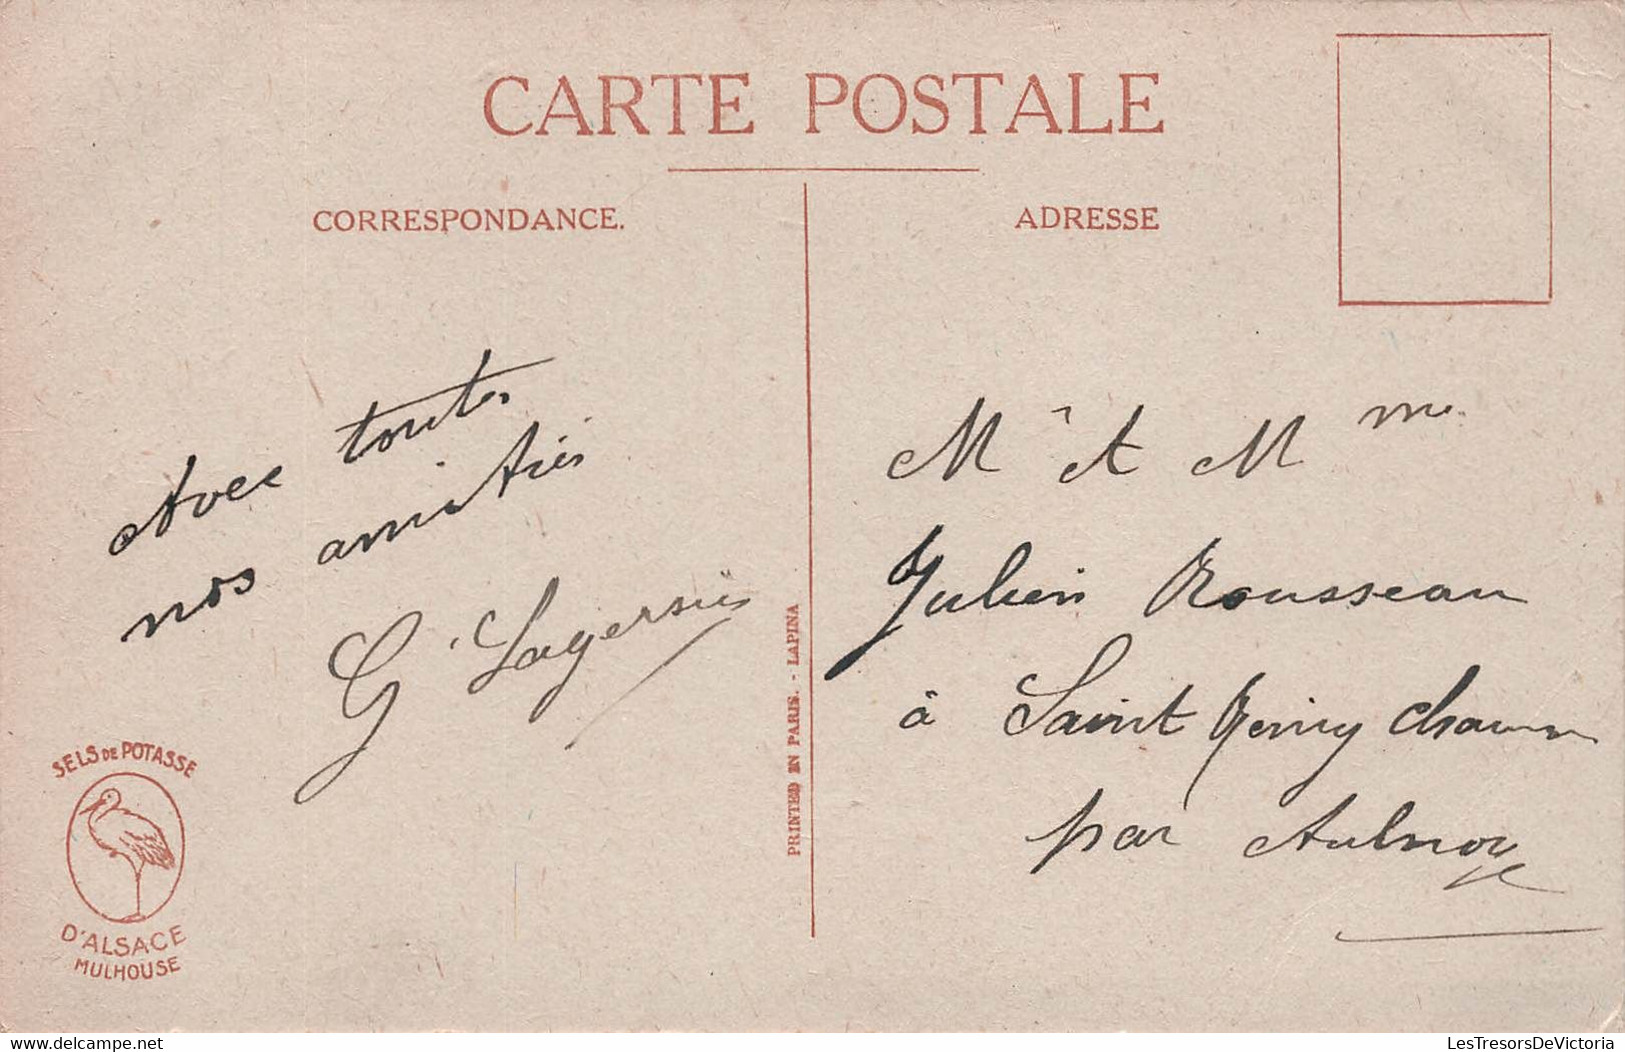 CARTE POSTALE
CORRESPONDANCE.
ADRESSE
Avec toutes
nos amitiés
PRINTED IN PARIS. - LAPINA
SELS DE POTASSE
D'ALSACE
MULHOUSE
Mr et Mme
Julien Rousseau
à Saint Remy
par Aulnoye
www.delcampe.net
LesTresorsDeVictoria